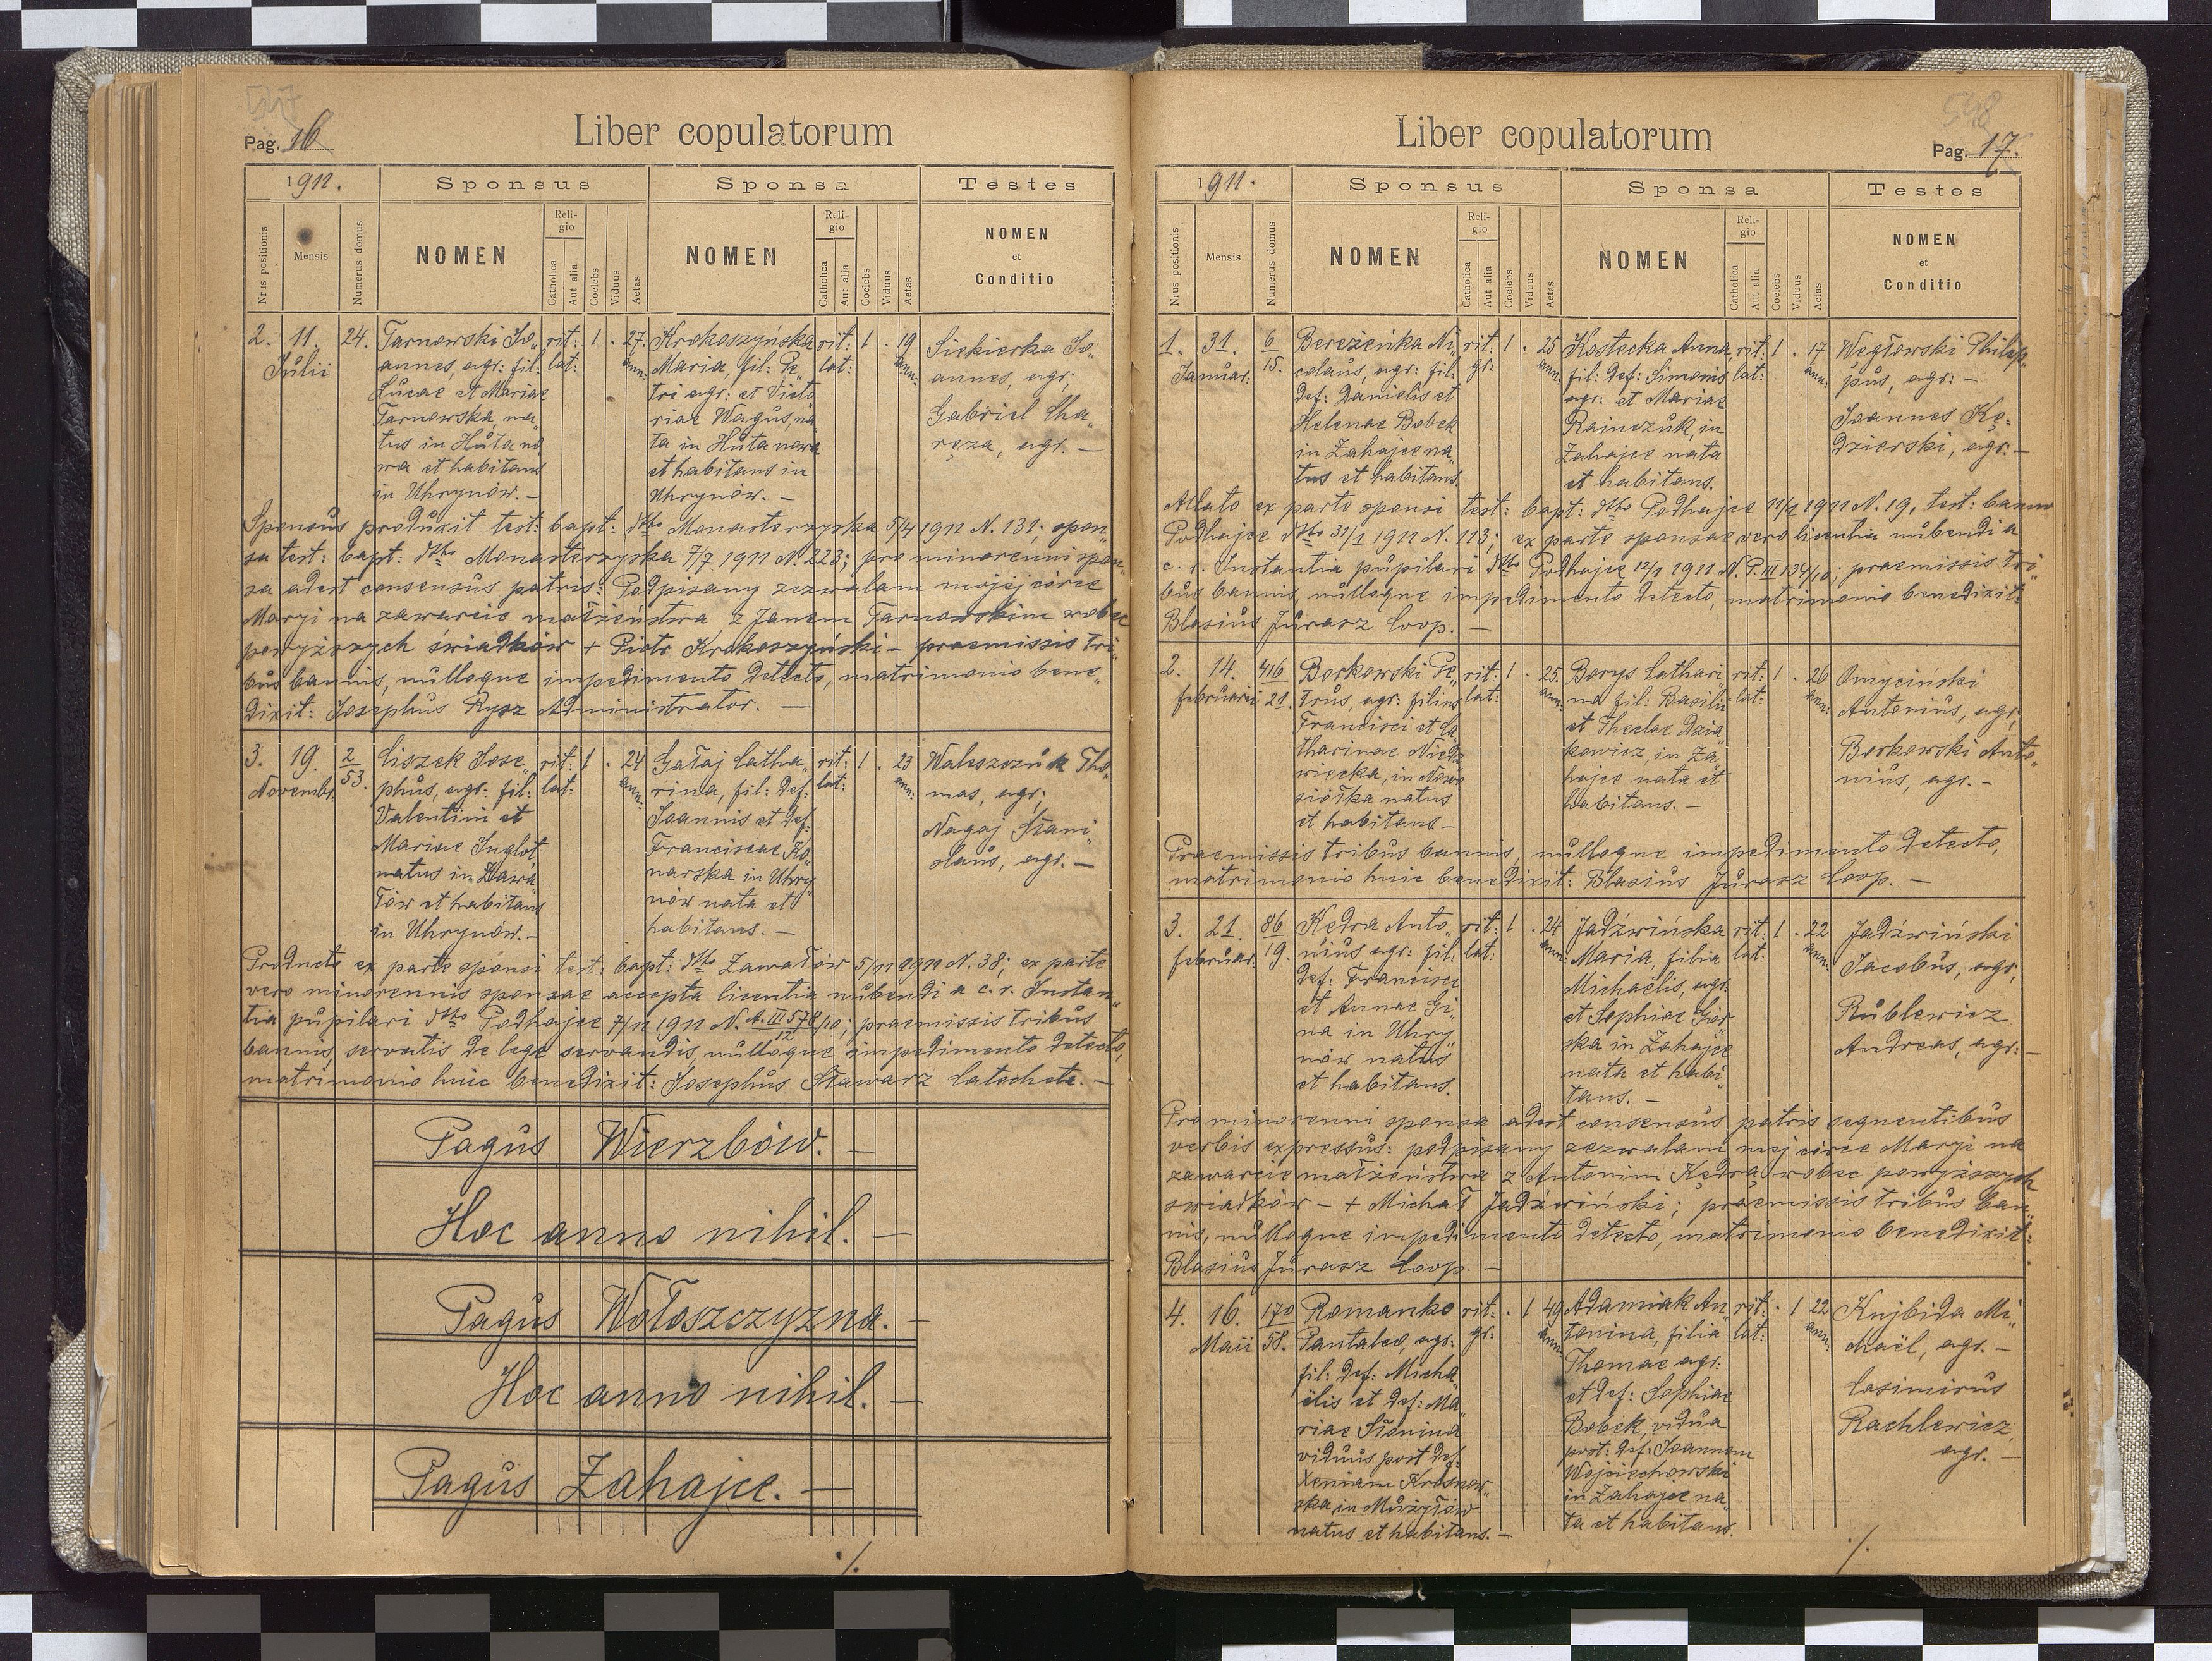 547
Pag. 16
Liber copulatorum
1911.
Sponsus
Sponsa
Testes
Nrus positionis
Mensis
Numerus domus
NOMEN
Religio
Catholica
Aut alia
Coelebs
Viduus
Aetas
NOMEN
Religio
Catholica
Aut alia
Coelebs
Viduus
Aetas
NOMEN
et
Conditio
2.
11.
Julii
24.
Tarnowski Jo„
annes, agr: fil:
Lucae et Mariae
Tarnowska, na„
tus in Huta no
wa et habitans
in Uhrynów. –
rit:
lat:
1
.
27.
ann:
Krokoszyńska
Maria, fil: Pe„
tri agr: et Victo
riae Wagus, na
ta in Huta nowa
et habitans in
Uhrynów. –
rit:
lat:
1
.
19
ann:
Siekierka Jo„
annes, agr;
Gabriel Cha„
ręza, agr. –
Sponsus produxit test: bapt: dtto Monasterzyska 5/4 1911 N. 131; spon„
sa test: bapt: dtto Monasterzyska 7/7 1911 N. 223; pro minorenni spon„
sa adest consensus patris: Podpisany zezwalam mojej córce
Maryi na zawarcie małżeństwa z Janem Tarnowskim wobec
powyższych świadków + Piotr Krokoszyński – praemissis tri„
bus bannis, nulloque impedimento detecto, matrimonio bene„
dixit: Josephus Rysz Administrator. –
3.
19.
Novembr.
2
53.
Liszek Jose„
phus, agr: fil:
Valentini et
Mariae Inglot,
natus in Zawa„
łów et habitans
in Uhrynów. –
rit:
lat:
1
.
24
ann:
Gałaj Catha„
rina, fil: def:
Joannis et def:
Franciscae Ko„
narska in Uhry„
nów nata et
habitans. –
rit:
lat:
1
.
23
ann:
Waloszczuk Tho„
mas, agr;
Nagaj Stani„
slaus, agr. –
Producto ex parte sponsi test: bapt: dtto Zawałów 5/11 1911 N. 38; ex parte
vero minorennis sponsae accepta licentia nubendi a c. r. Instan„
tia pupilari dtto Podhajce 7/11 1911 N. A. III 578/10; praemissis tribus
12
bannis, servatis de lege servandis, nulloque impedimento detecto,
matrimonio huic benedixit: Josephus Stawarz Catecheta. –
Pagus Wierzbów. –
Hoc anno nihil. –
Pagus Wołoszczyzna. –
Hoc anno nihil. –
Pagus Zahajce. –
./.
548
Pag. 17.
Liber copulatorum
1911.
Sponsus
Sponsa
Testes
Nrus positionis
Mensis
Numerus domus
NOMEN
Religio
Catholica
Aut alia
Coelebs
Viduus
Aetas
NOMEN
Religio
Catholica
Aut alia
Coelebs
Viduus
Aetas
NOMEN
et
Conditio
1.
31.
Januar:
6
15.
Bereżeńka Ni„
colaus, agr: fil:
def: Danielis et
Helenae Bobek
in Zahajce na„
tus et habitans.
rit:
gr:
1
.
25
ann:
Kostecka Anna,
fil: def: Simonis
agr: et Mariae
Rajnczuk, in
Zahajce nata
et habitans.
rit:
lat:
1
.
17
ann:
Węgłowski Philip„
pus, agr: –
Joannes Kę„
dzierski, agr: –
Allato ex parte sponsi test: bapt: dtto Podhajce 11/1 1911 N. 19, test: bannor
Podhajce dtto 31/1 1911 N. 113; ex parte sponsae vero licentia nubendi a
c. r. Instantia pupilari dtto Podhajce 12/1 1911 N. P. III 134/10; praemissis tri„
bus bannis, nulloque impedimento detecto, matrimonio benedixit:
Blasius Jurasz Coop. –
2.
14.
februarii
416
21.
Borkowski Pe„
trus, agr: filius
Francisci et Ca
tharinae Niedź
wiecka, in Nowo
siółka natus
et habitans –
rit:
lat:
1
.
25.
ann:
Borys Cathari„
na fil: Basilii
et Theclae Dzia„
kowicz, in Za„
hajce nata et
habitans. –
rit:
lat:
1
.
26
ann:
Omyciński
Antonius, agr;
Borkowski Anto„
nius, agr. –
Praemissis tribus bannis, nulloque impedimento detecto,
matrimonio huic benedixit: Blasius Jurasz Coop. –
3.
21.
februar:
86
19.
Kędra Anto„
nius agr: fil:
def: Francisci
et Annae Gi„
na in Uhry„
nów natus
et habitans.
rit:
lat:
1
.
24
ann:
Jadźwińska
Maria, filia
Michaelis, agr:
et Sophiae Gór„
ska in Zahajce
nata et habi„
tans. –
rit:
lat:
1
.
22
ann:
Jadźwiński
Jacobus, agr;
Rublewicz
Andreas, agr: –
Pro minorenni sponsa adest consensus patris sequentibus
verbis expressus: podpisany zezwalam mej córce Maryi na
zawarcie małżeństwa z Antonim Kędrą wobec powyższych
świadków – + Michał Jadźwiński; praemissis tribus ban„
nis, nulloque impedimento detecto, matrimonio benedixit:
Blasius Jurasz Coop. –
4.
16.
Maii
170
58.
Romanko
Pantaleo, agr:
fil: def: Micha„
ëlis et def: Ma„
riae Słonina
viduus post def:
Xeniam Krosnow„
ska, in Mużyłów
natus et habitans. –
rit:
gr:
.
1
49
ann:
Adamiak An„
tonina, filia
Thomae agr:
et def: Sophiae
Bobek, vidua
post: def: Joannem
Wojciechowski
in Zahajce na„
ta et habitans.
rit:
lat:
.
1
22
ann:
Knjbida Mi„
chaël, agr. –
Casimirus
Rachlewicz,
agr. –
./.